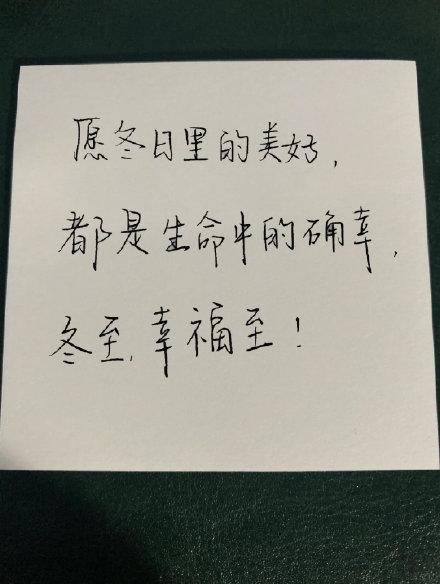 愿冬日里的美好，
都是生命中的确幸，
冬至，幸福至！